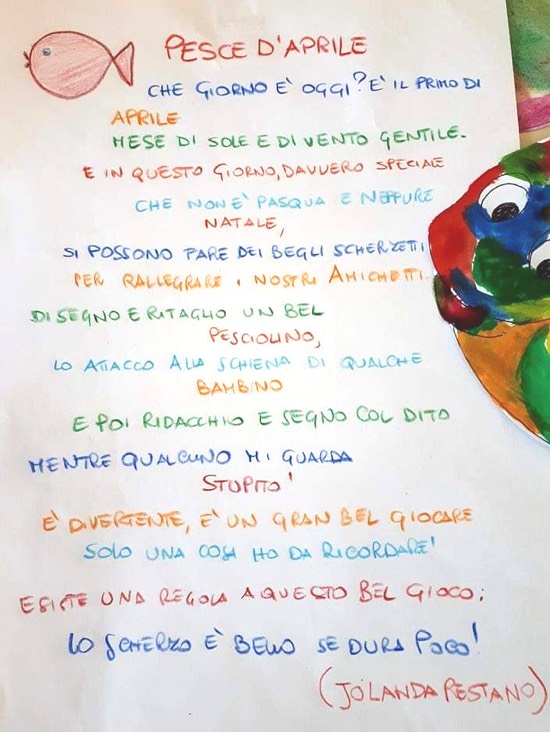 PESCE D'APRILE
CHE GIORNO E' OGGI? E' IL PRIMO DI
APRILE
MESE DI SOLE E DI VENTO GENTILE.
E IN QUESTO GIORNO, DAVVERO SPECIALE
CHE NON E' PASQUA E NEPPURE
NATALE,
SI POSSONO FARE DEI BEGLI SCHERZETTI
PER RALLEGRARE I NOSTRI AMICHETTI.
DISEGNO E RITAGLIO UN BEL
PESCIOLINO,
LO ATTACCO ALLA SCHIENA DI QUALCHE
BAMBINO
E POI RIDACCHIO E SEGNO COL DITO
MENTRE QUALCUNO MI GUARDA
STUPITO!
E' DIVERTENTE, E' UN GRAN BEL GIOCARE
SOLO UNA COSA HO DA RICORDARE!
ESISTE UNA REGOLA A QUESTO BEL GIOCO:
LO SCHERZO E' BELLO SE DURA POCO!
(JOLANDA RESTANO)